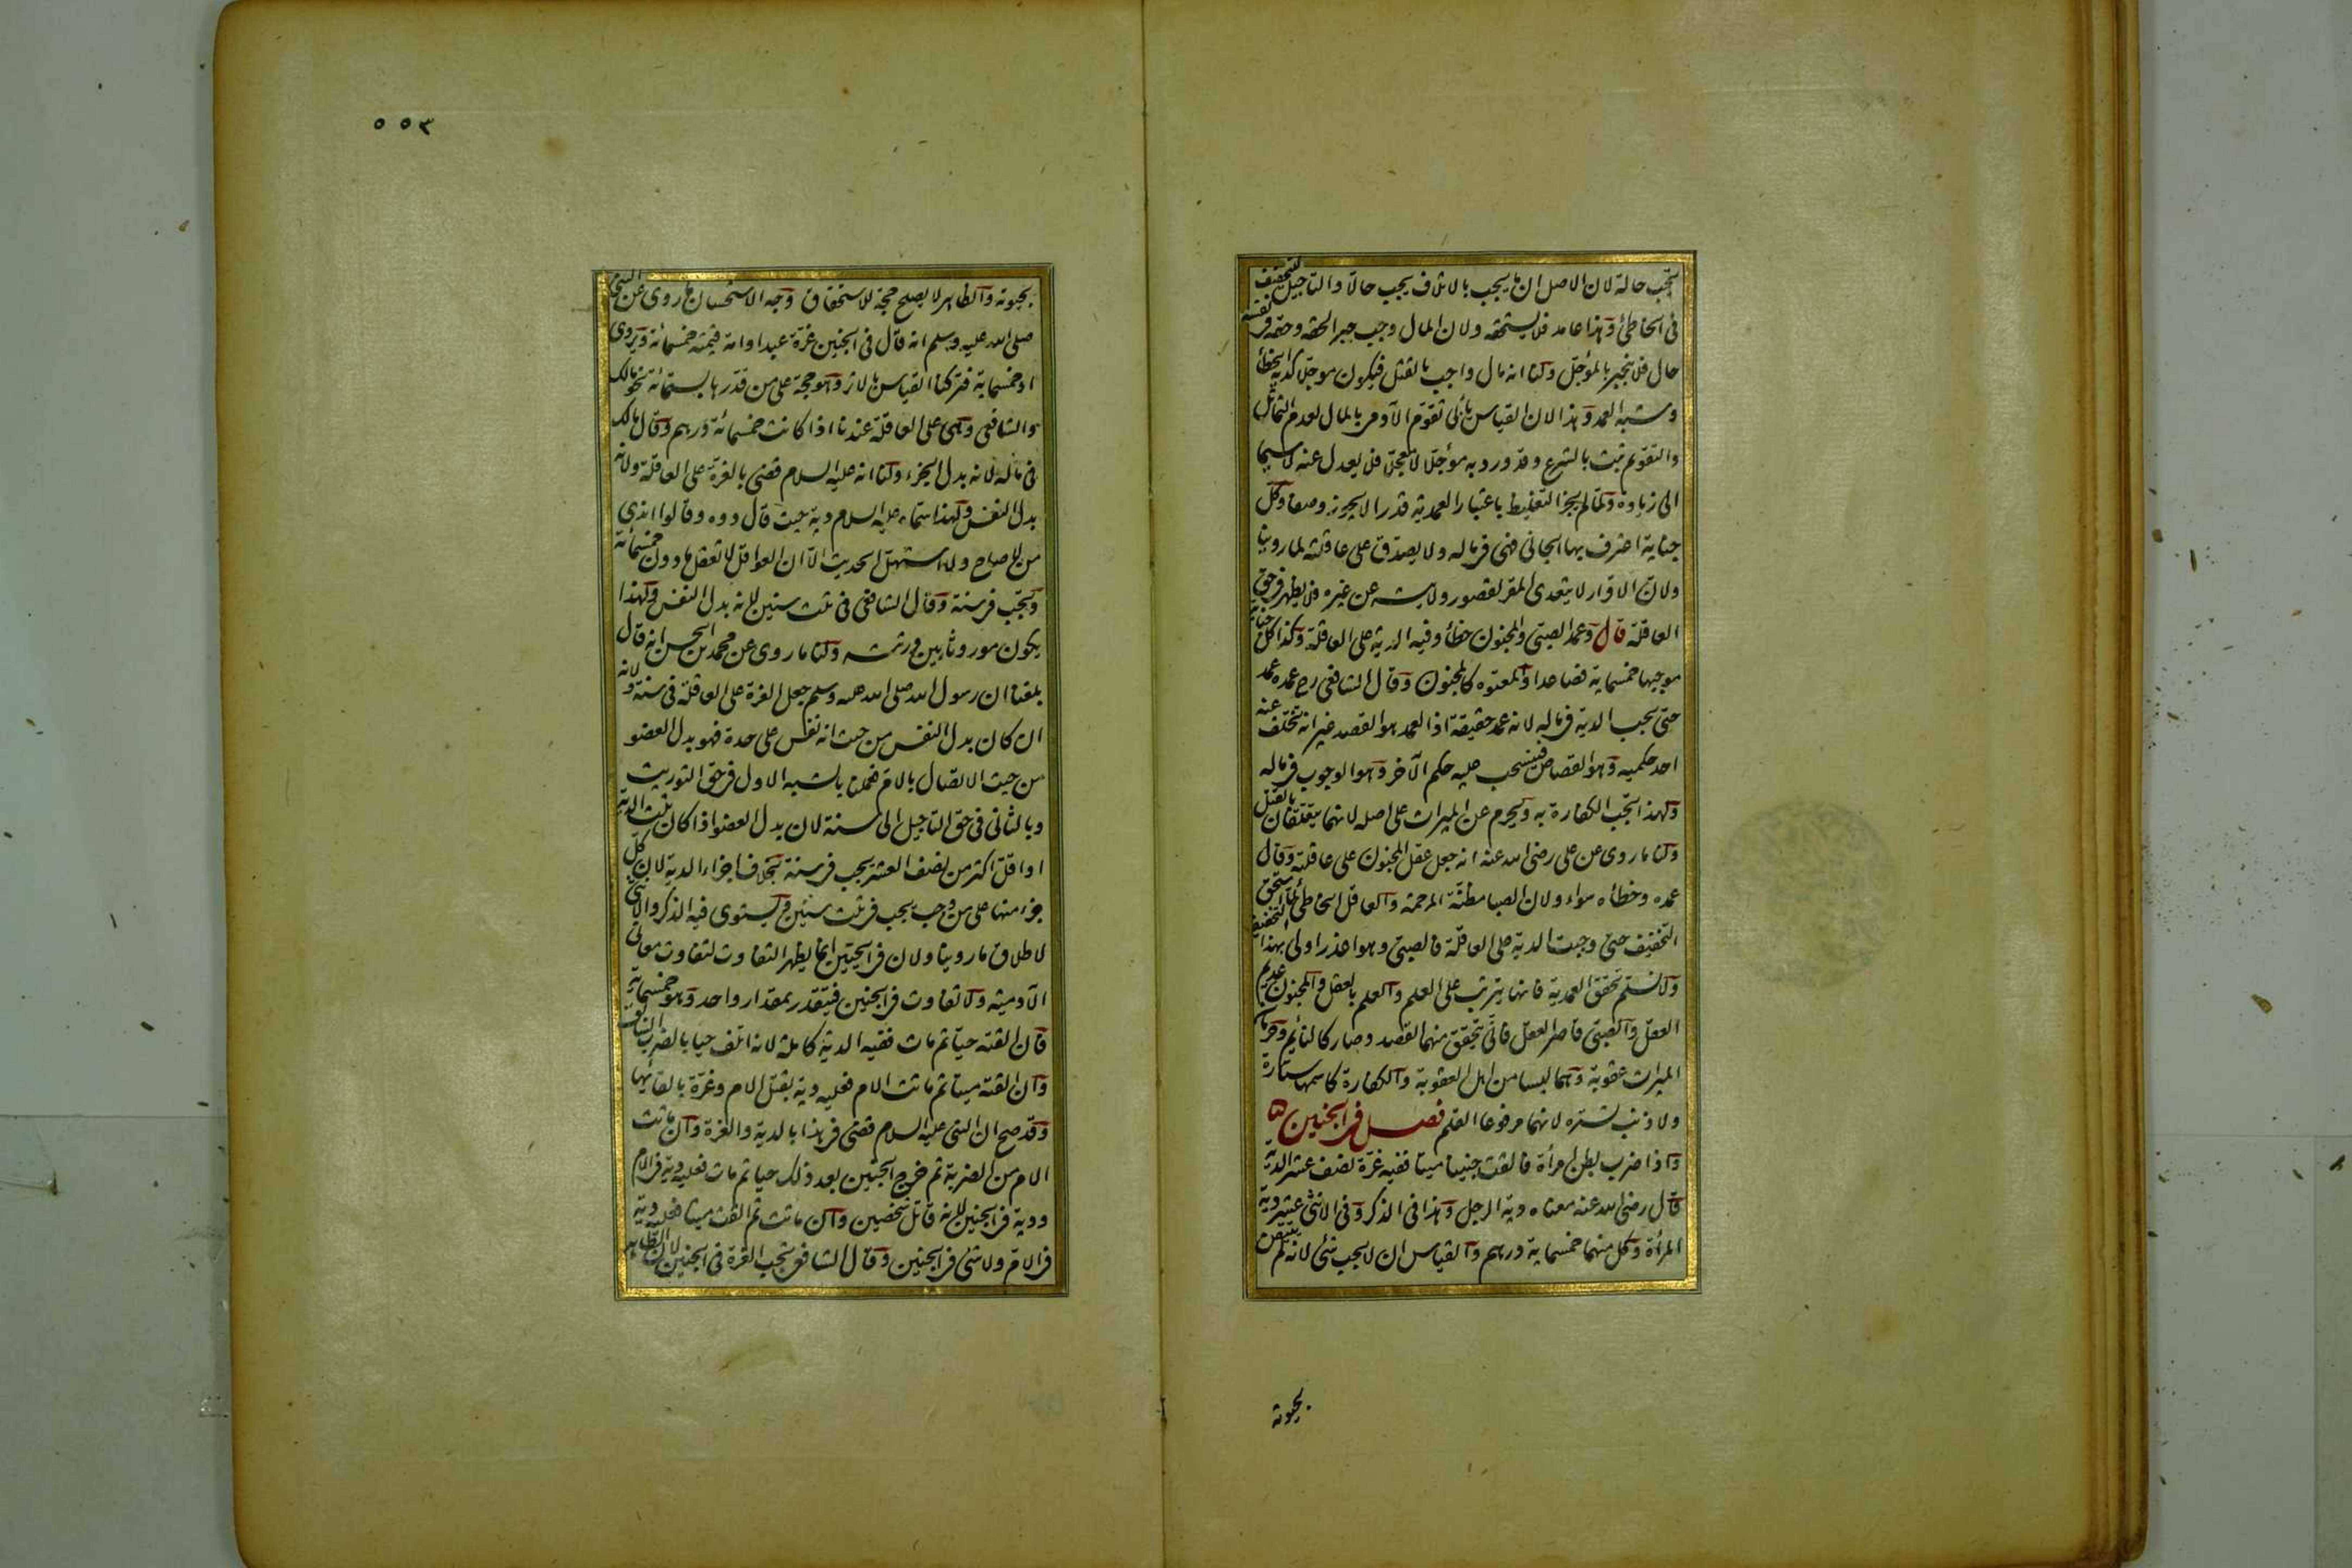 تجب حالة لان الاصل ان ما يجب بالاتلاف يجب حالا والتاجيل للتخفيف
فى الخاطئ وهذا عامد فلا يستحقه ولان المال وجب جبرا لحقه وحقه فى نفسه
حال فلا ينجبر بالمؤجل ولنا انه مال واجب بالقتل فيكون مؤجلا كدية الخطأ
وشبه العمد وهذا لان القياس يأبى تقوم الآدمى بالمال لعدم التماثل
والتقويم ثبت بالشرع وقد ورد به مؤجلا لا معجلا فلا يعدل عنه لا سيما
الى زيادة ولما لم يجز التغليظ باعتبار العمدية قدرا لا يجوز وصفا وكل
جناية اعترف بها الجانى فهى فى ماله ولا يصدق على عاقلته لما روينا
ولان الاقرار لا يتعدى المقر لقصور ولايته عن غيره فلا يظهر فى حق
العاقلة قال وعمد الصبى والمجنون خطأ وفيه الدية على العاقلة وكذا كل جناية
موجبها خمسماية فصاعدا والمعتوه كالمجنون وقال الشافعى رح عمده عمد
حتى يجب الدية فى ماله لانه عمد حقيقة اذ العمد هو القصد غير انه تخلف عنه
احد حكميه وهو القصاص فينسحب عليه حكم الآخر وهو الوجوب فى ماله
ولهذا تجب الكفارة به ويحرم عن الميراث على اصله لانهما يتعلقان بالقتل
ولنا ما روى عن على رضى الله عنه انه جعل عقل المجنون على عاقلته وقال
عمده وخطأه سواء ولان الصبا مظنة المرحمة والعاقل الخاطئ لما استحق
التخفيف حتى وجبت الدية على العاقلة فالصبى وهو اعذر اولى بهذا التخفيف
ولا نسلم تحقق العمدية فانها يترتب على العلم والعلم بالعقل والمجنون عديم
العقل والصبى قاصر العقل فانى يتحقق منهما القصد وصار كالنائم وحرمان
الميراث عقوبة وهما ليسا من اهل العقوبة والكفارة كاسمها ستارة
ولا ذنب تستره لانهما مرفوعا القلم فصل فى الجنين
واذا ضرب بطن امرأة فالقت جنينا ميتا ففيه غرة نصف عشر الدية
قال رضى الله عنه معناه دية الرجل وهذا فى الذكر وفى الانثى عشر دية
المرأة وكل منهما خمسماية درهم والقياس ان لا يجب شئ لانه لم يتيقن
بحيوته
٥٥٣
بحيوته والظاهر لا يصلح حجة للاستحقاق وجه الاستحسان ما روى عن النبى
صلى الله عليه وسلم انه قال فى الجنين غرة عبد او امة قيمته خمسمائة ويروى
او خمسماية فتركنا القياس بالاثر وهو حجة على من قدرها بالستمائة نحو مالك
والشافعى وهى على العاقلة عندنا اذا كانت خمسمائة درهم وقال مالك
فى ماله لانه بدل الجزء ولنا انه عليه السلام قضى بالغرة على العاقلة ولانه
بدل النفس ولهذا سماه عليه السلام دية حيث قال دوه وقالوا اندى
من لا صاح ولا استهل الحديث الا ان العواقل لا تعقل ما دون خمسمائة
وتجب فى سنة وقال الشافعى فى ثلث سنين لانه بدل النفس ولهذا
يكون موروثا بين ورثته ولنا ما روى عن محمد بن الحسن انه قال
بلغنا ان رسول الله صلى الله عليه وسلم جعل الغرة على العاقلة فى سنة ولانه
ان كان بدل النفس من حيث انه نفس على حدة فهو بدل العضو
من حيث الاتصال بالام فعملنا بالشبه الاول فى حق التوريث
وبالثانى فى حق التاجيل الى سنة لان بدل العضو اذا كان ثلث الدية
او اقل اكثر من نصف العشر يجب فى سنة بخلاف اجزاء الدية لان كل
جزء منها على من وجب يجب فى ثلث سنين ويستوى فيه الذكر والانثى
لاطلاق ما روينا ولان فى الحيين انما يظهر التفاوت لتفاوت معانى
الآدمية ولا تفاوت فى الجنين فيتقدر بمقدار واحد وهو خمسماية
فان القته حيا ثم مات ففيه الدية كاملة لانه اتلف حيا بالضرب السابق
وان القته ميتا ثم ماتت الام فعليه دية بقتل الام وغرة بالقائها
وقد صح ان النبى عليه السلام قضى فى هذا بالدية والغرة وان ماتت
الام من الضربة ثم خرج الجنين بعد ذلك حيا ثم مات فعليه دية فى الام
ودية فى الجنين لانه قاتل شخصين وان ماتت ثم القت ميتا فعليه دية
فى الام ولا شئ فى الجنين وقال الشافعى تجب الغرة فى الجنين لان الظاهر